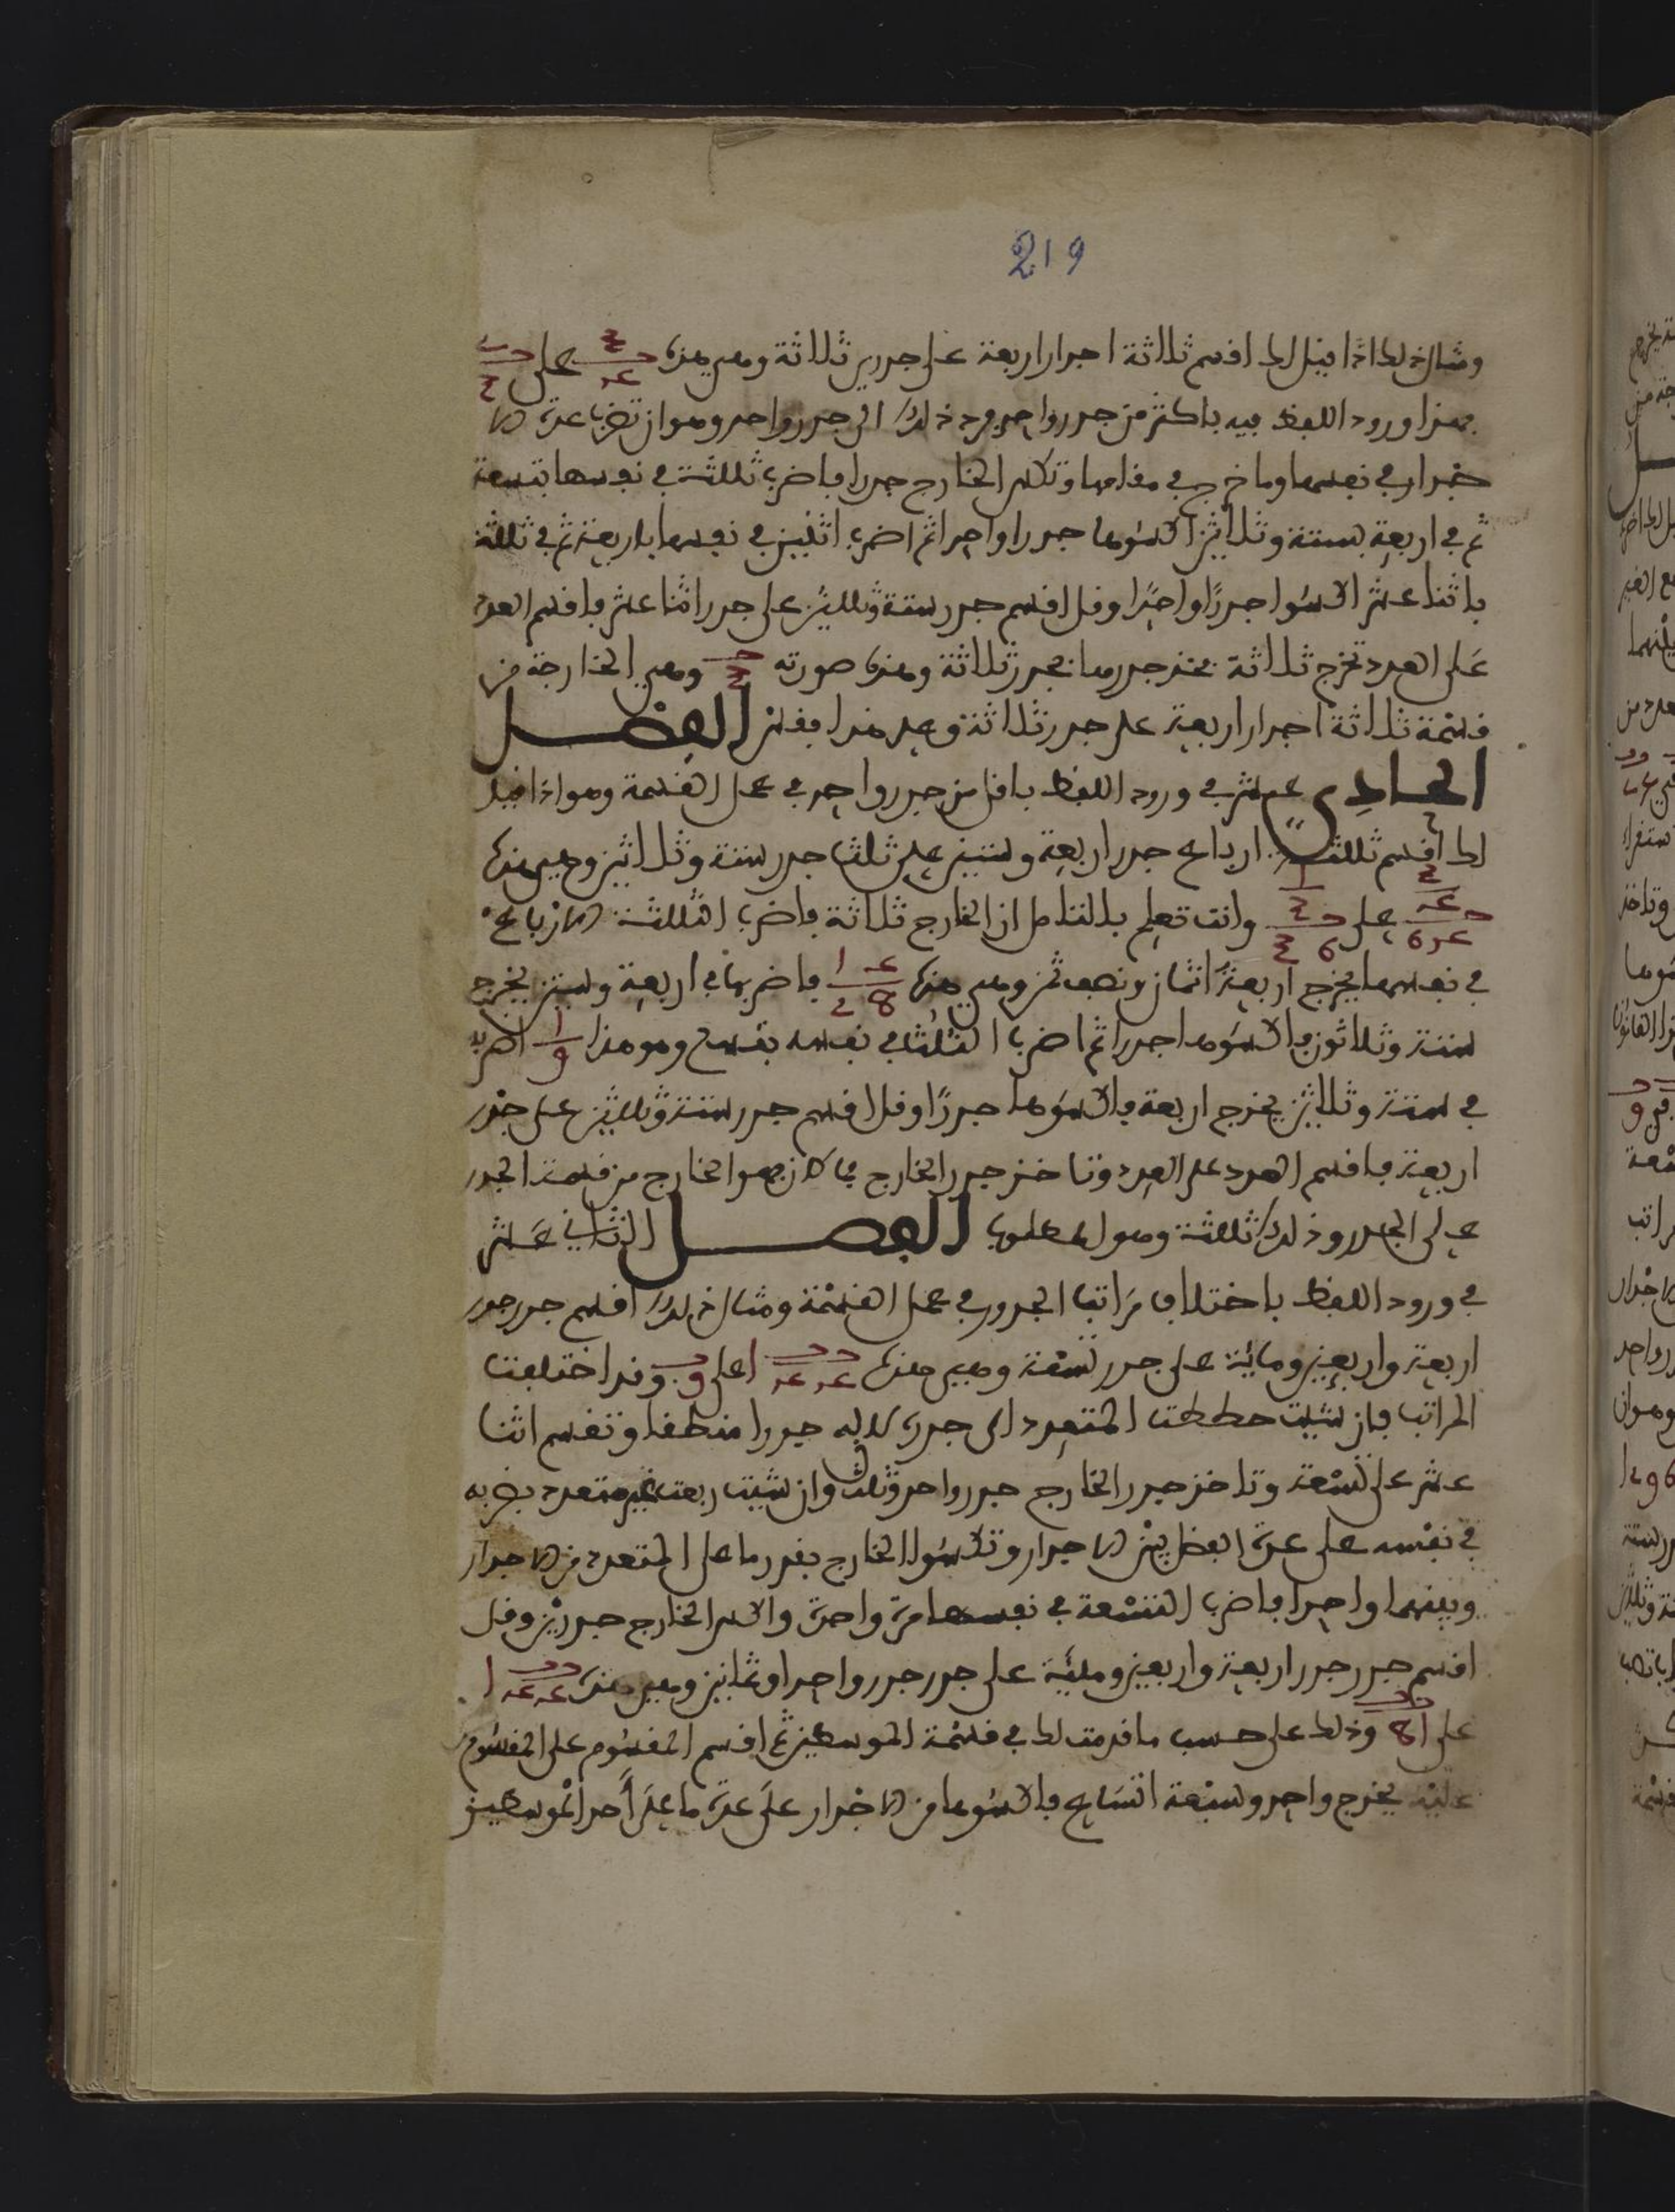 219
ومثال ذلك اذا قيل لك اقسم ثلاثة اجذار اربعة على جذري ثلاثة وهي هذه على
فهذا ورود اللفظ فيه باكثر من جذر واحد فرد ذلك الى جذر واحد وهو ان تضرب عدة الا
جذار في نفسها وما خرج في مقامها وتكسر الخارج جذرا فاضرب ثلثة في نفسها بتسعة
ثم في اربعة بستة وثلاثين اكسوها جذرا واحدا ثم اضرب اثنين في نفسها باربعة ثم في ثلثة
باثنا عشر اكسوا جذرًا واحدًا وقل اقسم جذر ستة وثلثين على جذر اثنا عشر فاقسم العدد
على العدد تخرج ثلاثة فخذ جذرها بجذر ثلاثة وهذه صورته وهي الخارجة من
قسمة ثلاثة اجذار اربعة على جذر ثلاثة وعلى هذا فقس الفصل
الحادي عشر في ورود اللفظ باقل من جذر واحد في عمل القسمة وهو اذا قيل
لك اقسم ثلثة ارباع جذر اربعة وستين على ثلثا جذر ستة وثلاثين وهي هذه
على وانت تعلم بالتامل ان الخارج ثلاثة فاضرب الثلثة الارباع
في نفسها يخرج اربعة اثمان ونصف ثمن وهي هذه فاضربها في اربعة وستين يخرج
ستة وثلاثون فاكسوها جذرا ثم اضرب الثلثا في نفسه بتسع وهو هذا اضربه
في ستة وثلاثين يخرج اربعة فاكسوها جذرًا وقل اقسم جذر ستة وثلثين على جذر
اربعة فاقسم العدد على العدد وتاخذ جذر الخارج فما كان فهو الخارج من قسمة الجذر
على الجذر وذلك ثلثة وهو المطلوب الفصل الثاني عشر
في ورود اللفظ باختلاف مراتب الجذور في عمل القسمة ومثال ذلك اقسم جذر جذر
اربعة واربعين ومائة على جذر تسعة وهي هذه على 9 وقد اختلفت
المراتب فان شيت حططت المتعدد الى جذر لانه جذرا منطقا وتقسم اثنا
عشر على تسعة وتاخذ جذر الخارج جذر واحد وثلث وان شيت ربعت غير متعدد بضربه
في نفسه على عدة الفضل بين الاجذار وتكسوا الخارج بقدر ما على المتعدد من الاجذار
وبينهما واحدا فاضرب التسعة في نفسها مرة واحدة واكس الخارج جذرين وقل
اقسم جذر جذر اربعة واربعين ومئة على جذر جذر واحدا وثمانين وهي هذه
على 81 وذلك على حسب ما قدمت لك في قسمة الموسطين ثم اقسم المقسوم على المقسوم
عليه يخرج واحد وسبعة اتساع فاكسوها من الاجذار على عدة ما على احد الموسطين